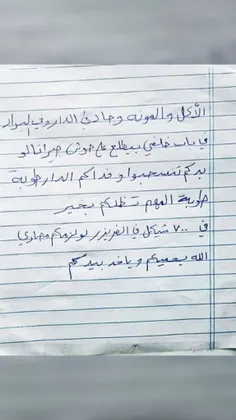 الأكل والمونه وحادي الدار وفي البواد
في باب خلفي بيطلع على حوش جيرانالو
بدكم تنسحبوا وفداكم الدار طوبة
طوبة المهم تظلكم بخير
في ٧٠٠ شيكل في الفريزر لو لزمكم مصاري
الله يحميكم وياخد بيدكم